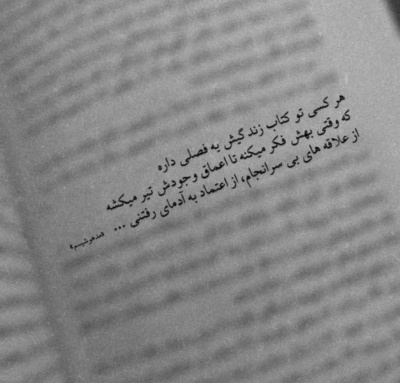 هر کسی تو کتاب زندگیش یه فصلی داره
که وقتی بهش فکر میکنه تا اعماق وجودش تیر میکشه
از علاقه های بی سرانجام، از اعتماد به آدمای رفتنی ...